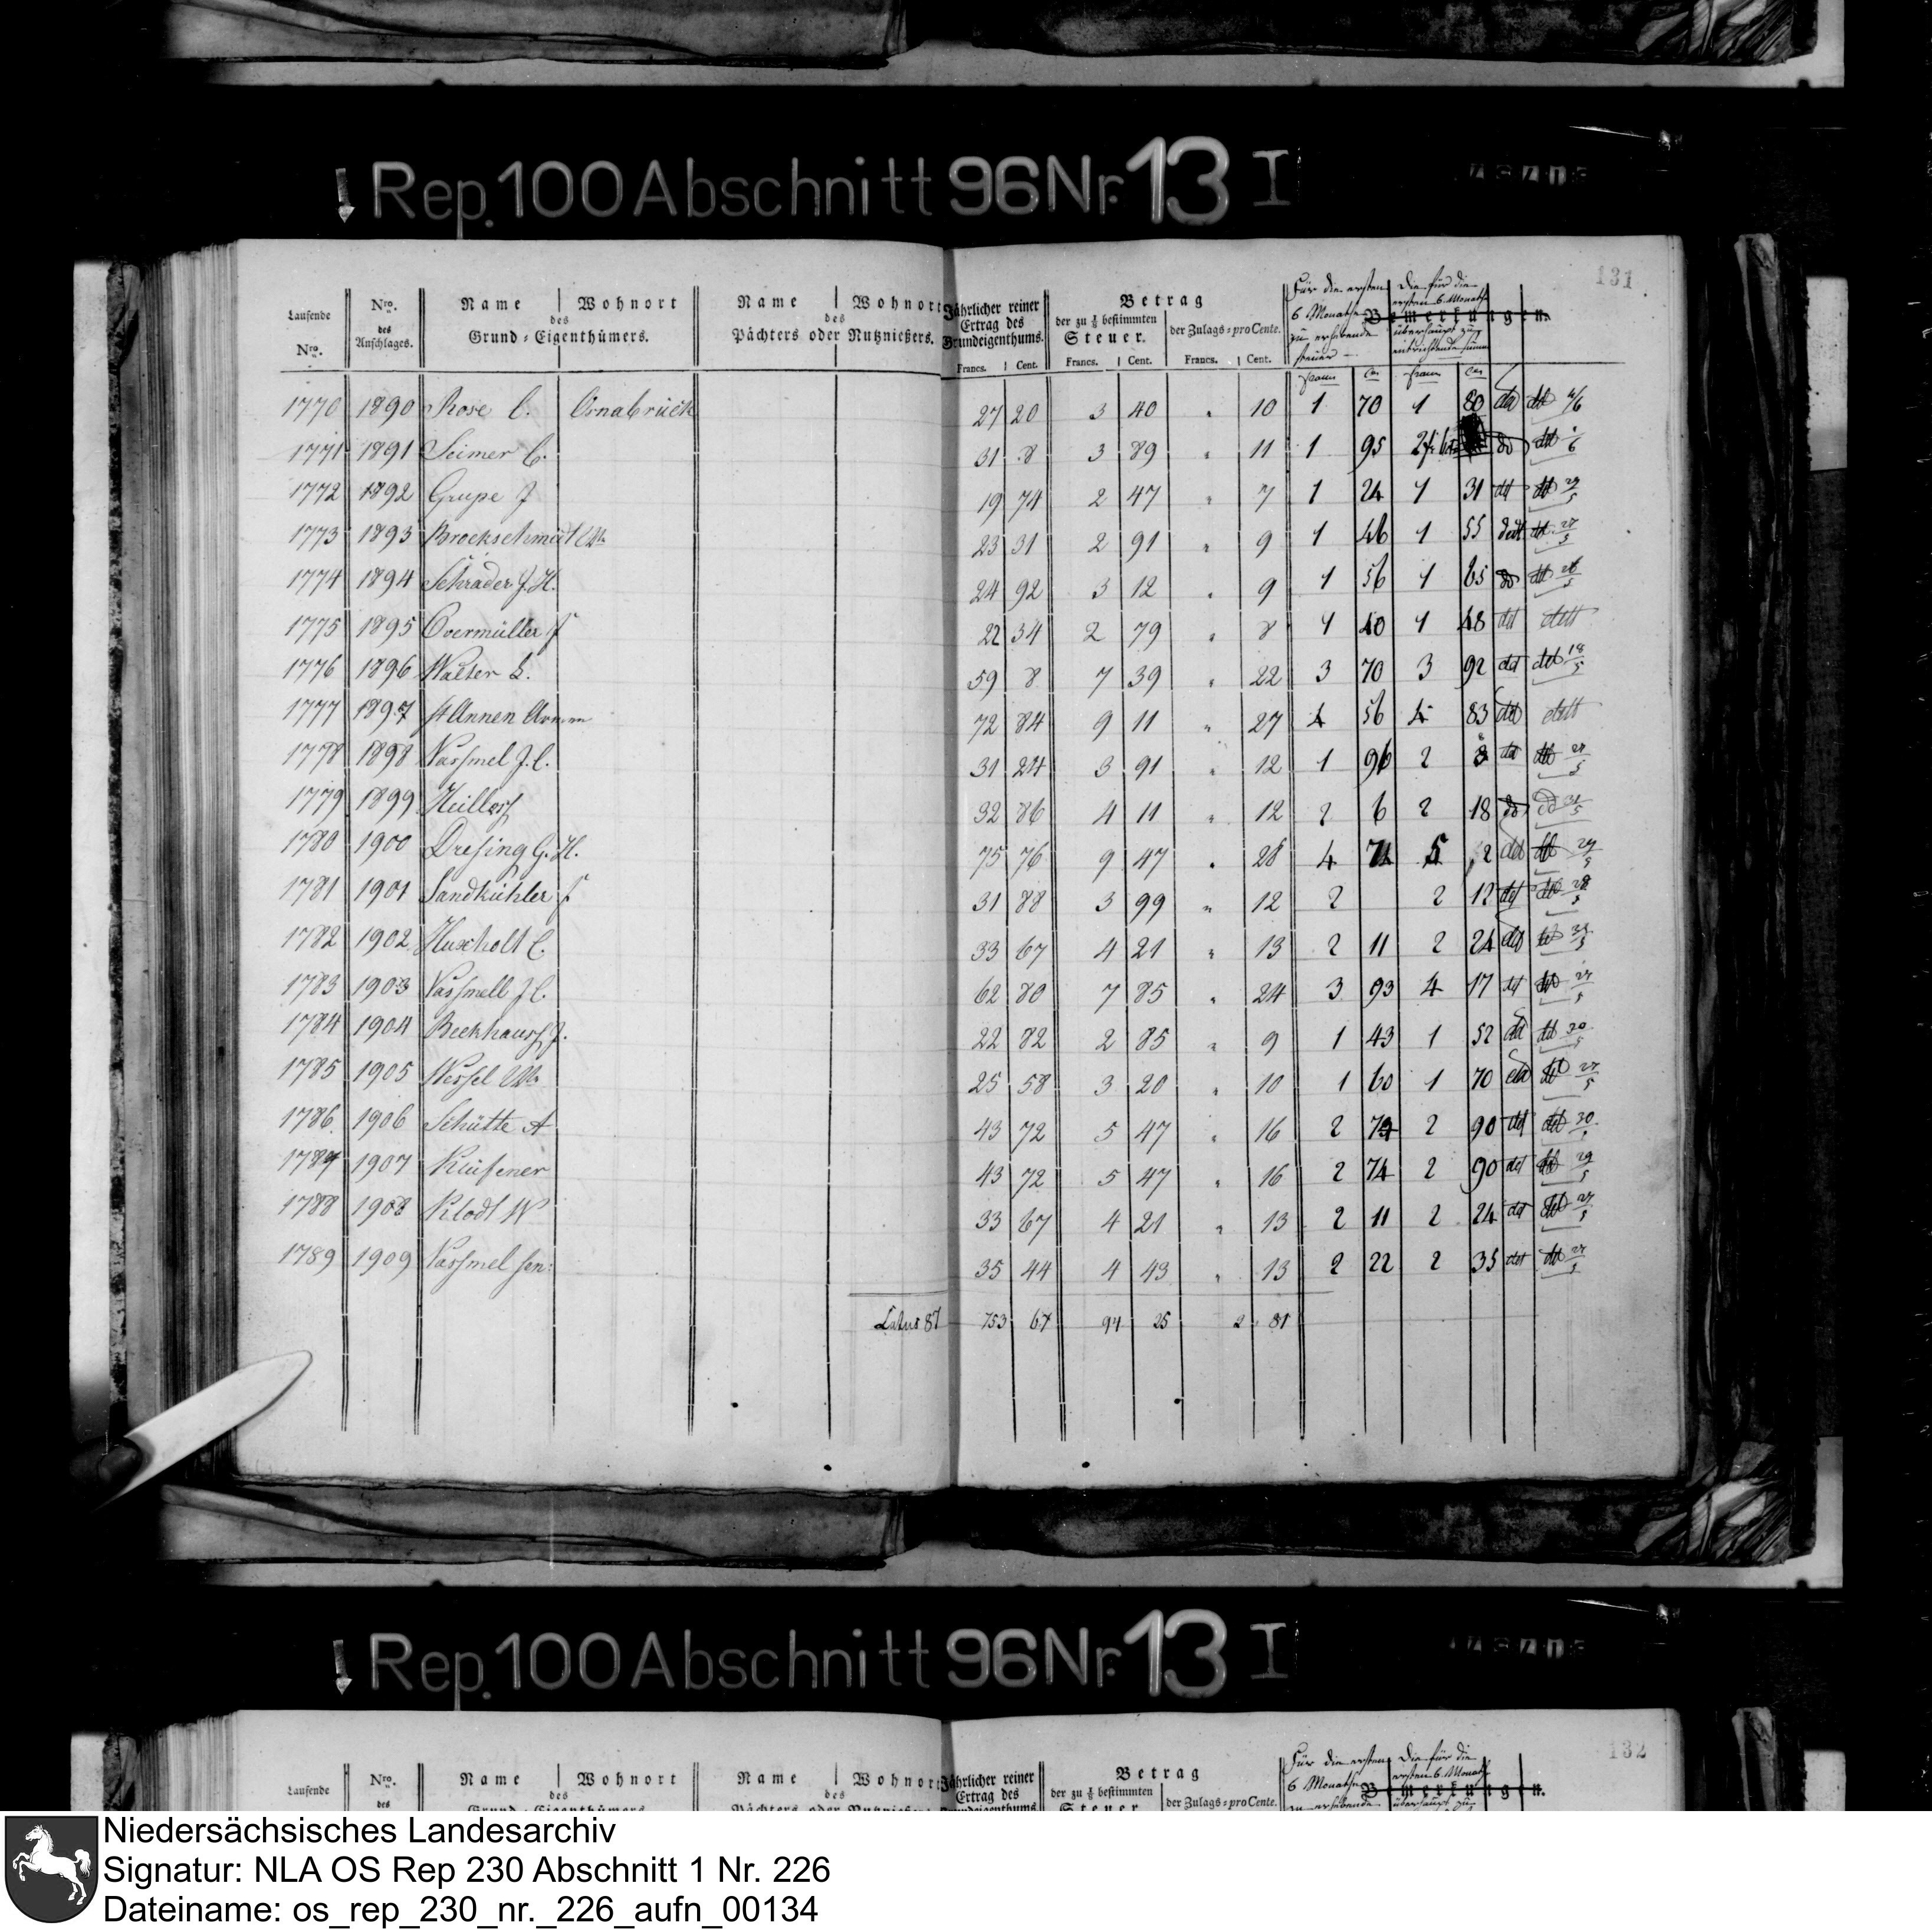 Rep. 100 Abschnitt 96 Nr. 13 I
131
Laufende Nro. Nro. des Anschlages. Name Wohnort des Grund-Eigenthümers. Name Wohnort des Pächters oder Nutznießers. Jährlicher reiner Ertrag des Grundeigenthums. Betrag der zu 1/8 bestimmten Steuer. der Zulags-pro Cente. Für die ersten 6 Monathe zu erhebende Steuer Die für die ersten 6 Monathe überhaupt zu entrichtende Summe Bemerkungen.
Francs. Cent. Francs. Cent. Francs. Cent.
1770 1890 Rose C. Osnabrück 27 20 3 40 " 10 1 70 1 80
1771 1891 Seimer C. 31 8 3 89 " 11 1 95
1772 1892 Grupe J 19 74 2 47 " 7 1 24 1 31
1773 1893 Brockschmidt Ww 23 31 2 91 " 9 1 46 1 55
1774 1894 Schrader J. H. 24 92 3 12 " 9 1 56 1 65
1775 1895 Overmüller J 22 34 2 79 " 8 1 40 1 48
1776 1896 Walter L. 59 8 7 39 " 22 3 70 3 92
1777 1897 St Annen Armen 72 84 9 11 " 27 4 56 4 83
1778 1898 Vassmel J. C. 31 24 3 91 " 12 1 96 2 8
1779 1899 32 86 4 11 " 12 2 6 2 18
1780 1900 Dresing G. H. 75 76 9 47 " 28 4 74 5 2
1781 1901 Sandkühler J 31 88 3 99 " 12 2 2 12
1782 1902 Huxholt C. 33 67 4 21 " 13 2 11 2 24
1783 1903 Vassmell J C. 62 80 7 85 " 24 3 93 4 17
1784 1904 Beckhaus J. 22 82 2 85 " 9 1 43 1 52
1785 1905 Wessel Ww 25 58 3 20 " 10 1 60 1 70
1786 1906 Schütte A 43 72 5 47 " 16 2 74 2 90
1787 1907 Klüsener 43 72 5 47 " 16 2 74 2 90
1788 1908 Klodt W 33 67 4 21 " 13 2 11 2 24
1789 1909 Vassmel sen: 35 44 4 43 " 13 2 22 2 35
Latus 87 753 67 94 25 2 81
Rep. 100 Abschnitt 96 Nr. 13 I
132
Laufende Nro. des Name Wohnort des Grund-Eigenthümers Name Wohnort des Pächters oder Nutznießers Jährlicher reiner Ertrag des Grundeigenthums Betrag der zu 1/8 bestimmten Steuer der Zulags-pro Cente. Für die ersten 6 Monathe zu erhebende Die für die ersten 6 Monathe überhaupt zu Bemerkungen.
Niedersächsisches Landesarchiv
Signatur: NLA OS Rep 230 Abschnitt 1 Nr. 226
Dateiname: os_rep_230_nr._226_aufn_00134